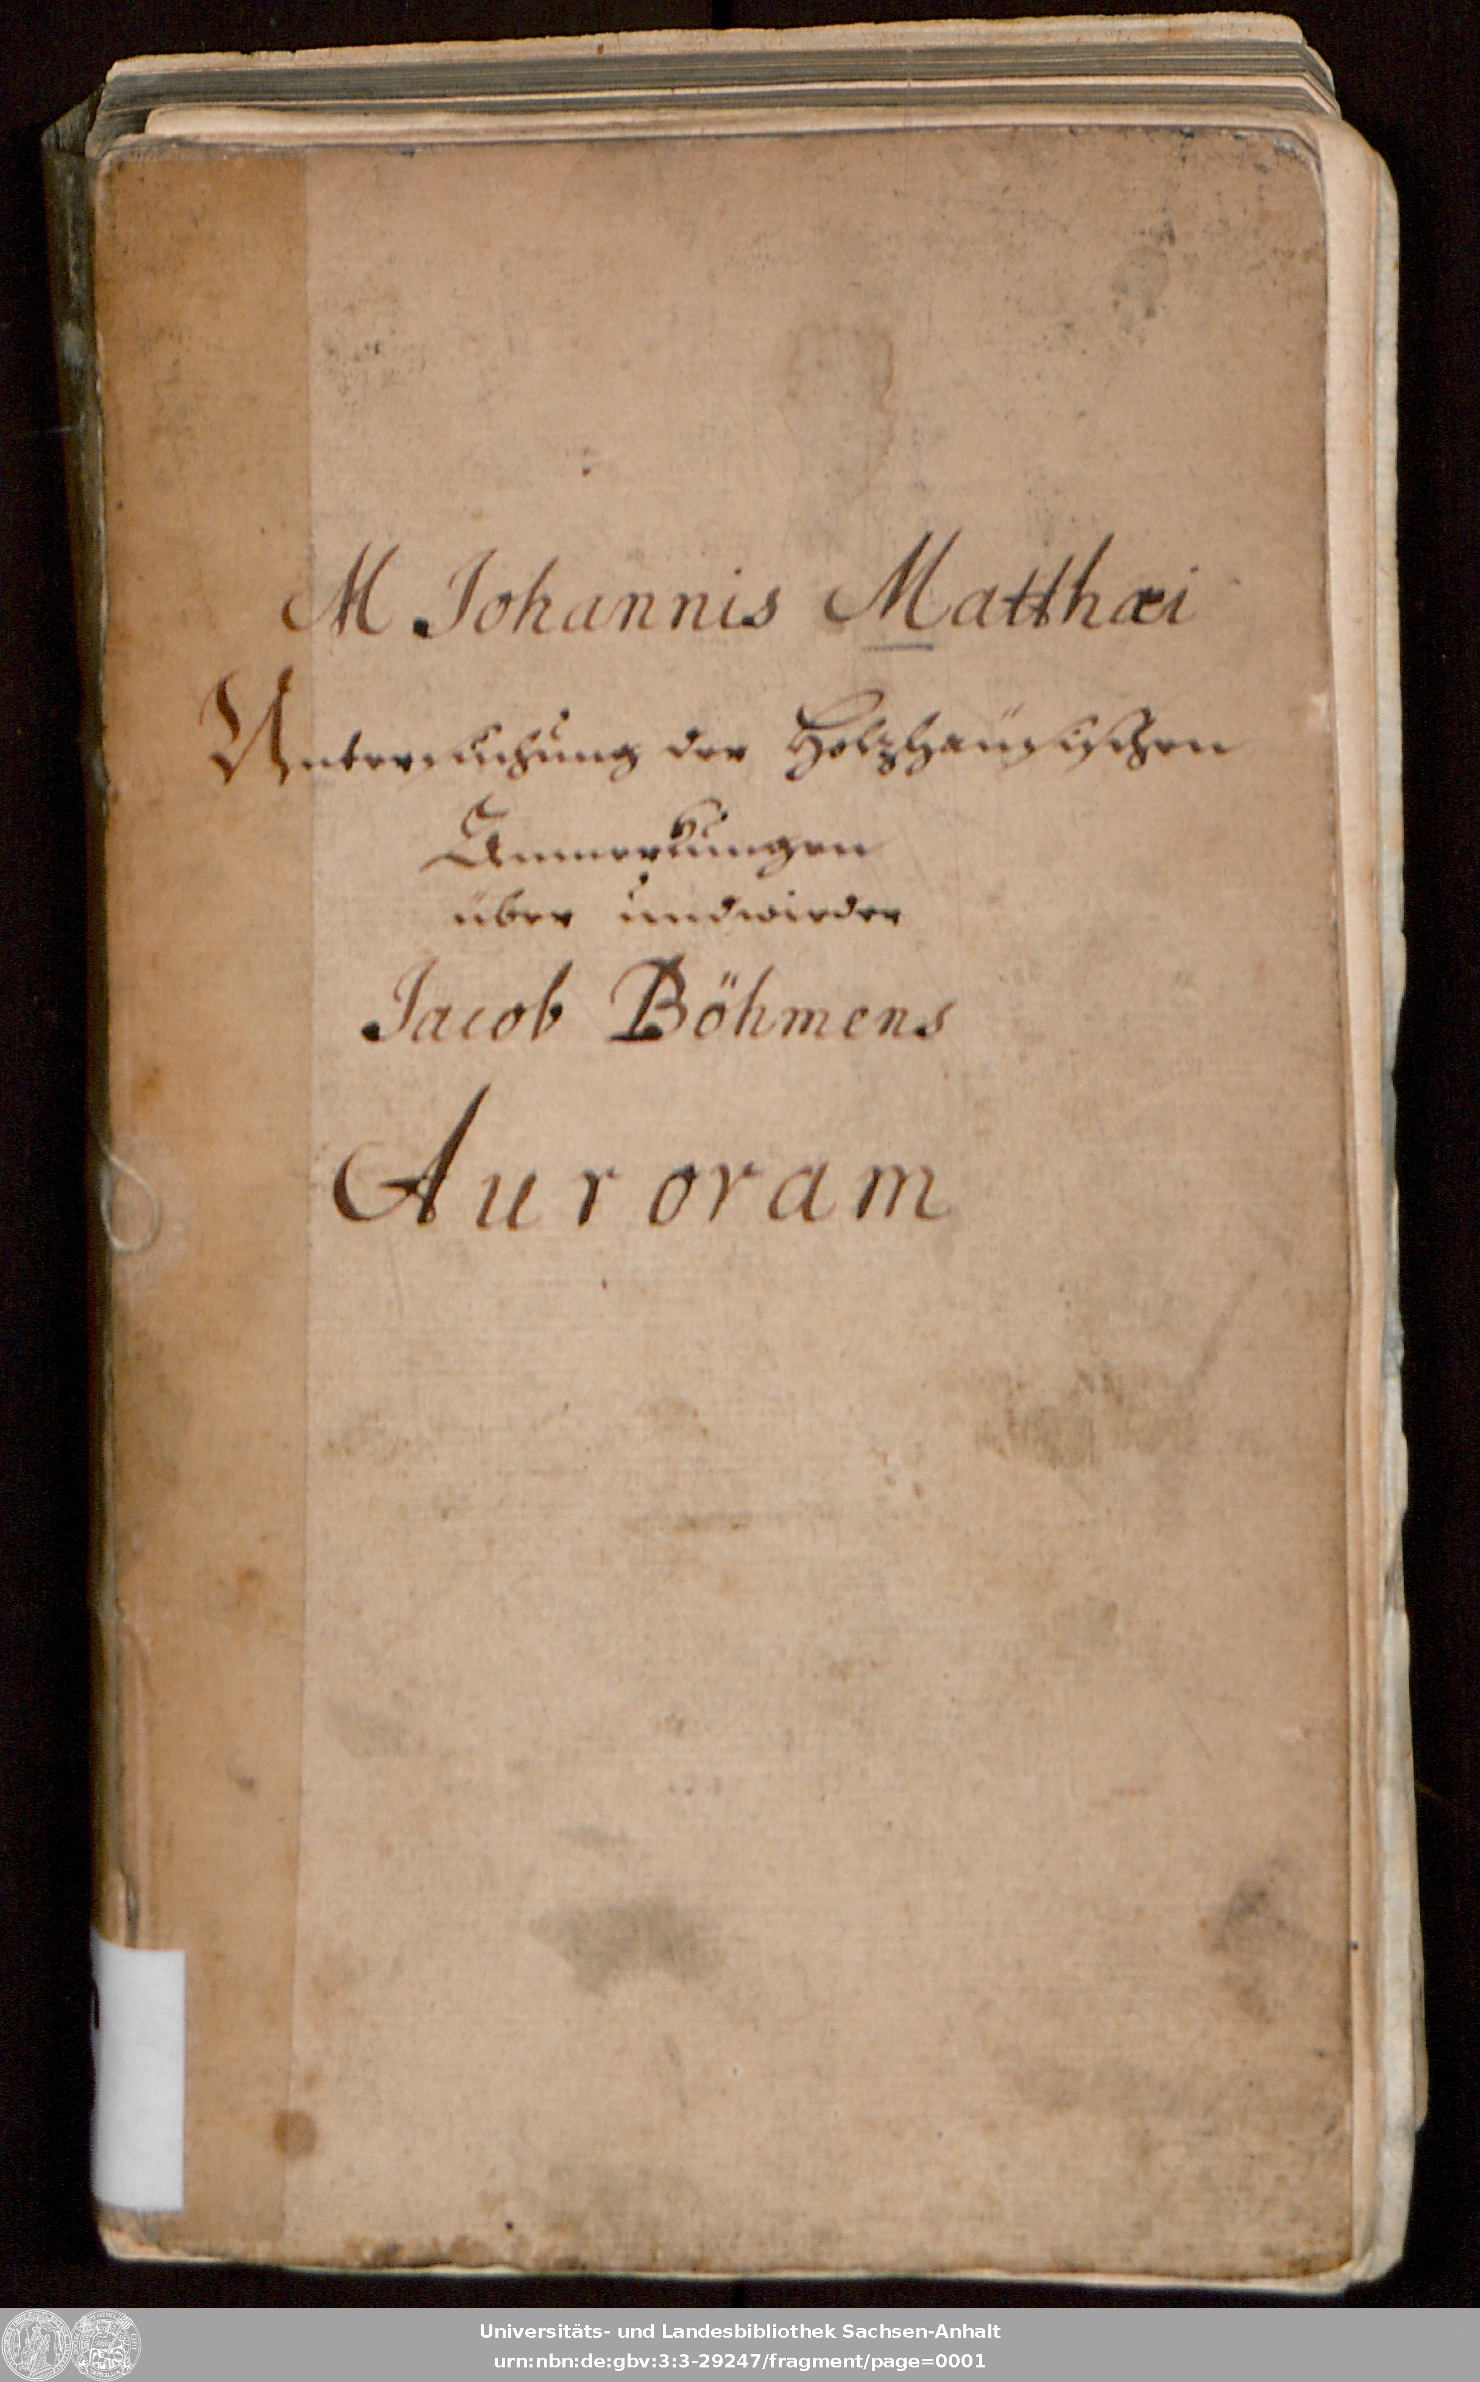 M Johannis Matthæi
Untersuchung der Holzhaüsischen
Anmerkungen
über und wieder
Jacob Böhmens
Auroram
Universitäts- und Landesbibliothek Sachsen-Anhalt
urn:nbn:de:gbv:3:3-29247/fragment/page=0001